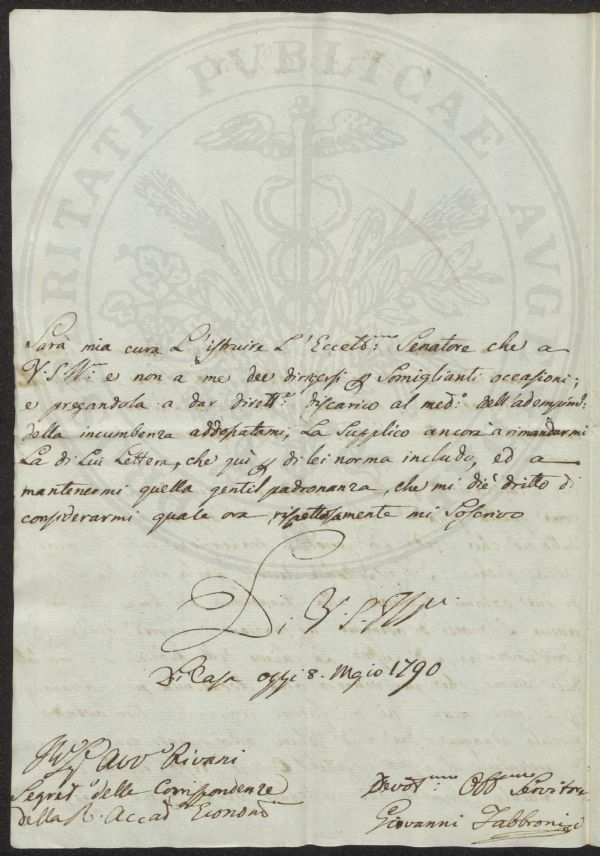 PROSPERITATI PVBLICAE AVGENDAE
Sarà mia cura L'istruire L'Eccell:mo Senatore che a
V.S. Ill:ma e non a me dee dirigersi p Somiglianti occasioni;
e pregandola a dar dirett:o discarico al med:o dell'adempim:o
della incumbenza addossatami, La Supplico ancora a rimandarmi
La di Lui Lettera, che quì p di lei norma includo, ed a
mantenermi quella gentil padronanza, che mi diè dritto di
considerarmi quale ora rispettosamente mi Soscrivo
Di V.S. Ill:ma
Di Casa oggi 8. Mgio 1790
Avv:o Rivani
Segret:o delle Corrispondenze
della R. Accad:a Econom:a
Devot:mo Obb:mo Servitore
Giovanni Fabbroni